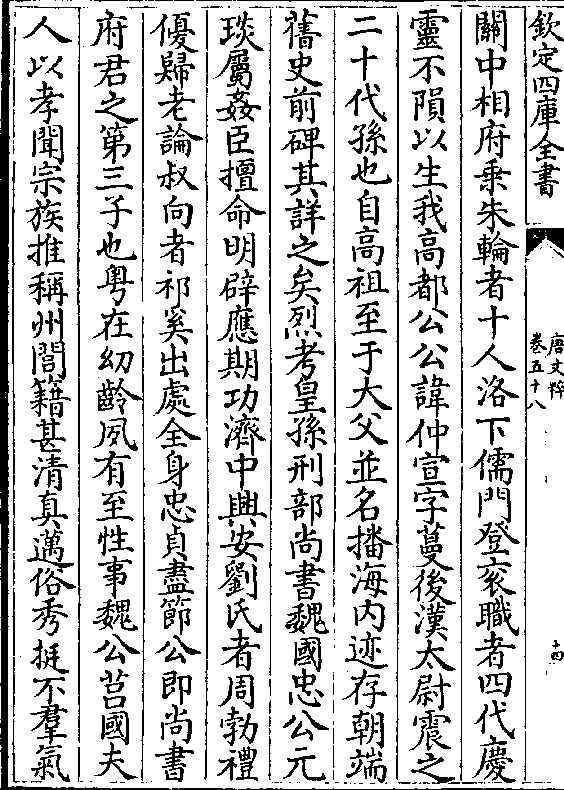 欽定四庫全書
唐文粹
卷五十八
十四
關中相府乗朱輪者十人洛下儒門登衮職者四代慶
靈不隕以生我高都公公諱仲宣字蔓後漢太尉震之
二十代孫也自高祖至于大父並名播海内迹存朝端
舊史前碑其詳之矣烈考皇孫刑部尚書魏國忠公元
琰屬姦臣擅命明辟應期功濟中興安劉氏者周勃禮
優歸老論叔向者祁奚出處全身忠貞盡節公即尚書
府君之第三子也粤在幼齡夙有至性事魏公莒國夫
人以孝聞宗族推稱州閭籍甚清真邁俗秀挺不羣氣